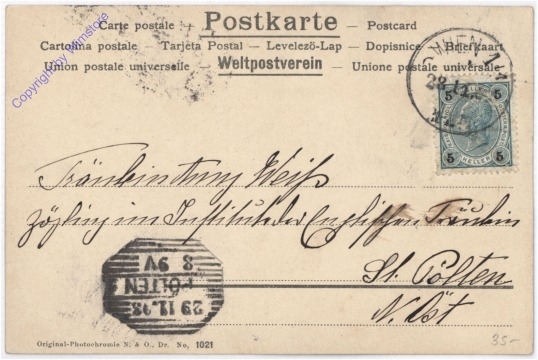 Carte postale — Postkarte — Postcard
Cartolina postale — Tarjeta Postal — Levelező-Lap — Dopisnice — Briefkaart
Union postale universelle — Weltpostverein — Unione postale universale
Copyright by Mimstore
WIEN
28.11.
5 5
5 HELLER 5
Weiß
Zögling im Institut der Englischen Fräulein
St. Pölten
N. Öst
ST. PÖLTEN
29.11.98
8-9V
Original-Photochromie N. & O., Dr. No, 1021
35-